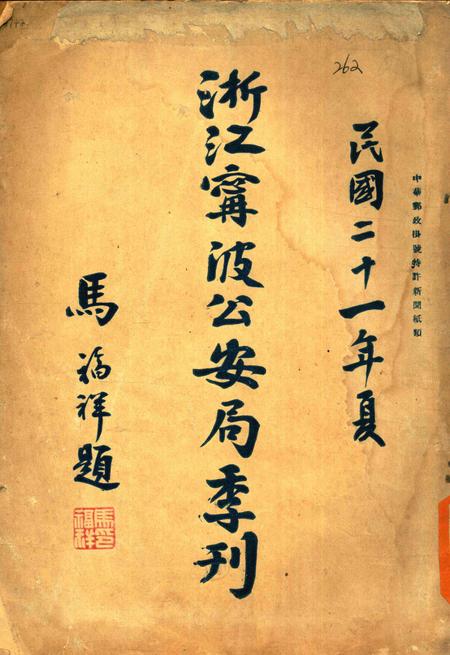 中華郵政掛號特許新聞紙類
262
民國二十一年夏
浙江寗波公安局季刊
馬福祥題
馬福祥印